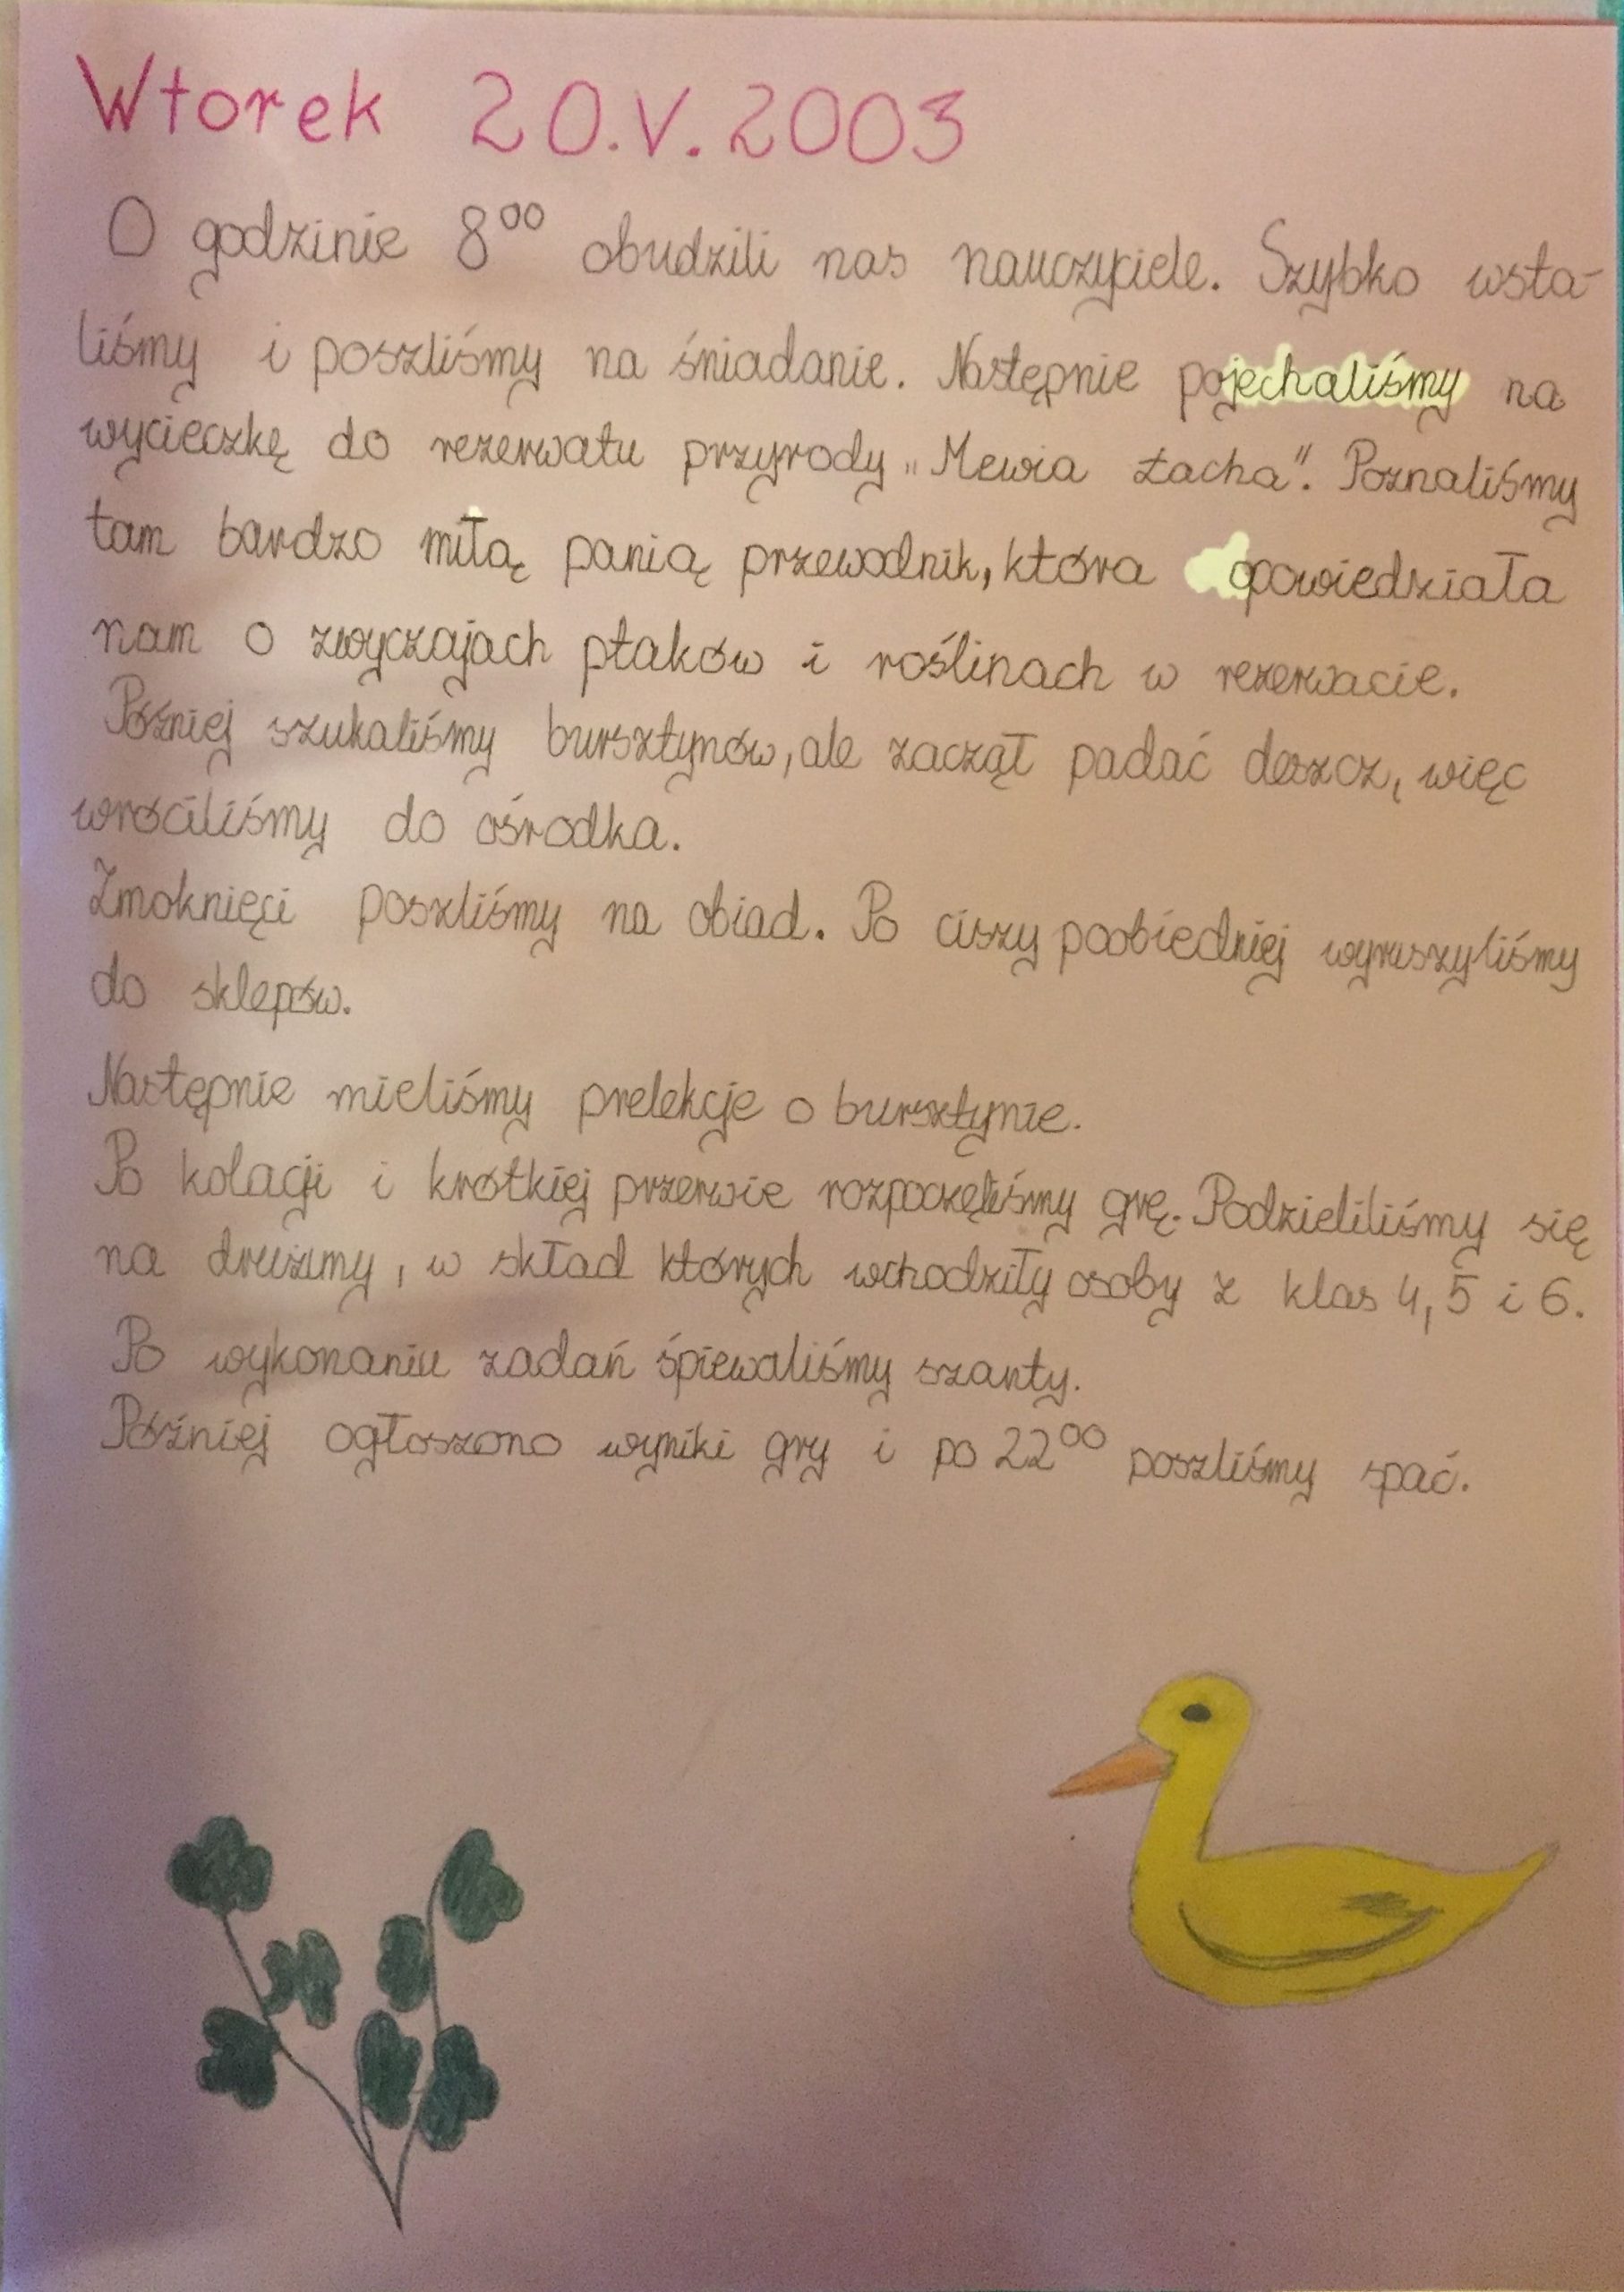 Wtorek 20.V.2003
O godzinie 8⁰⁰ obudzili nas nauczyciele. Szybko wsta-
liśmy i poszliśmy na śniadanie. Następnie pojechaliśmy na
wycieczkę do rezerwatu przyrody „Mewia Łacha”. Poznaliśmy
tam bardzo miłą panią przewodnik, która opowiedziała
nam o zwyczajach ptaków i roślinach w rezerwacie.
Później szukaliśmy bursztynów, ale zaczął padać deszcz, więc
wróciliśmy do ośrodka.
Zmoknięci poszliśmy na obiad. Po ciszy poobiedniej wyruszyliśmy
do sklepów.
Następnie mieliśmy prelekcje o bursztynie.
Po kolacji i krótkiej przerwie rozpoczęliśmy grę. Podzieliliśmy się
na drużyny, w skład których wchodziły osoby z klas 4, 5 i 6.
Po wykonaniu zadań śpiewaliśmy szanty.
Później ogłoszono wyniki gry i po 22⁰⁰ poszliśmy spać.